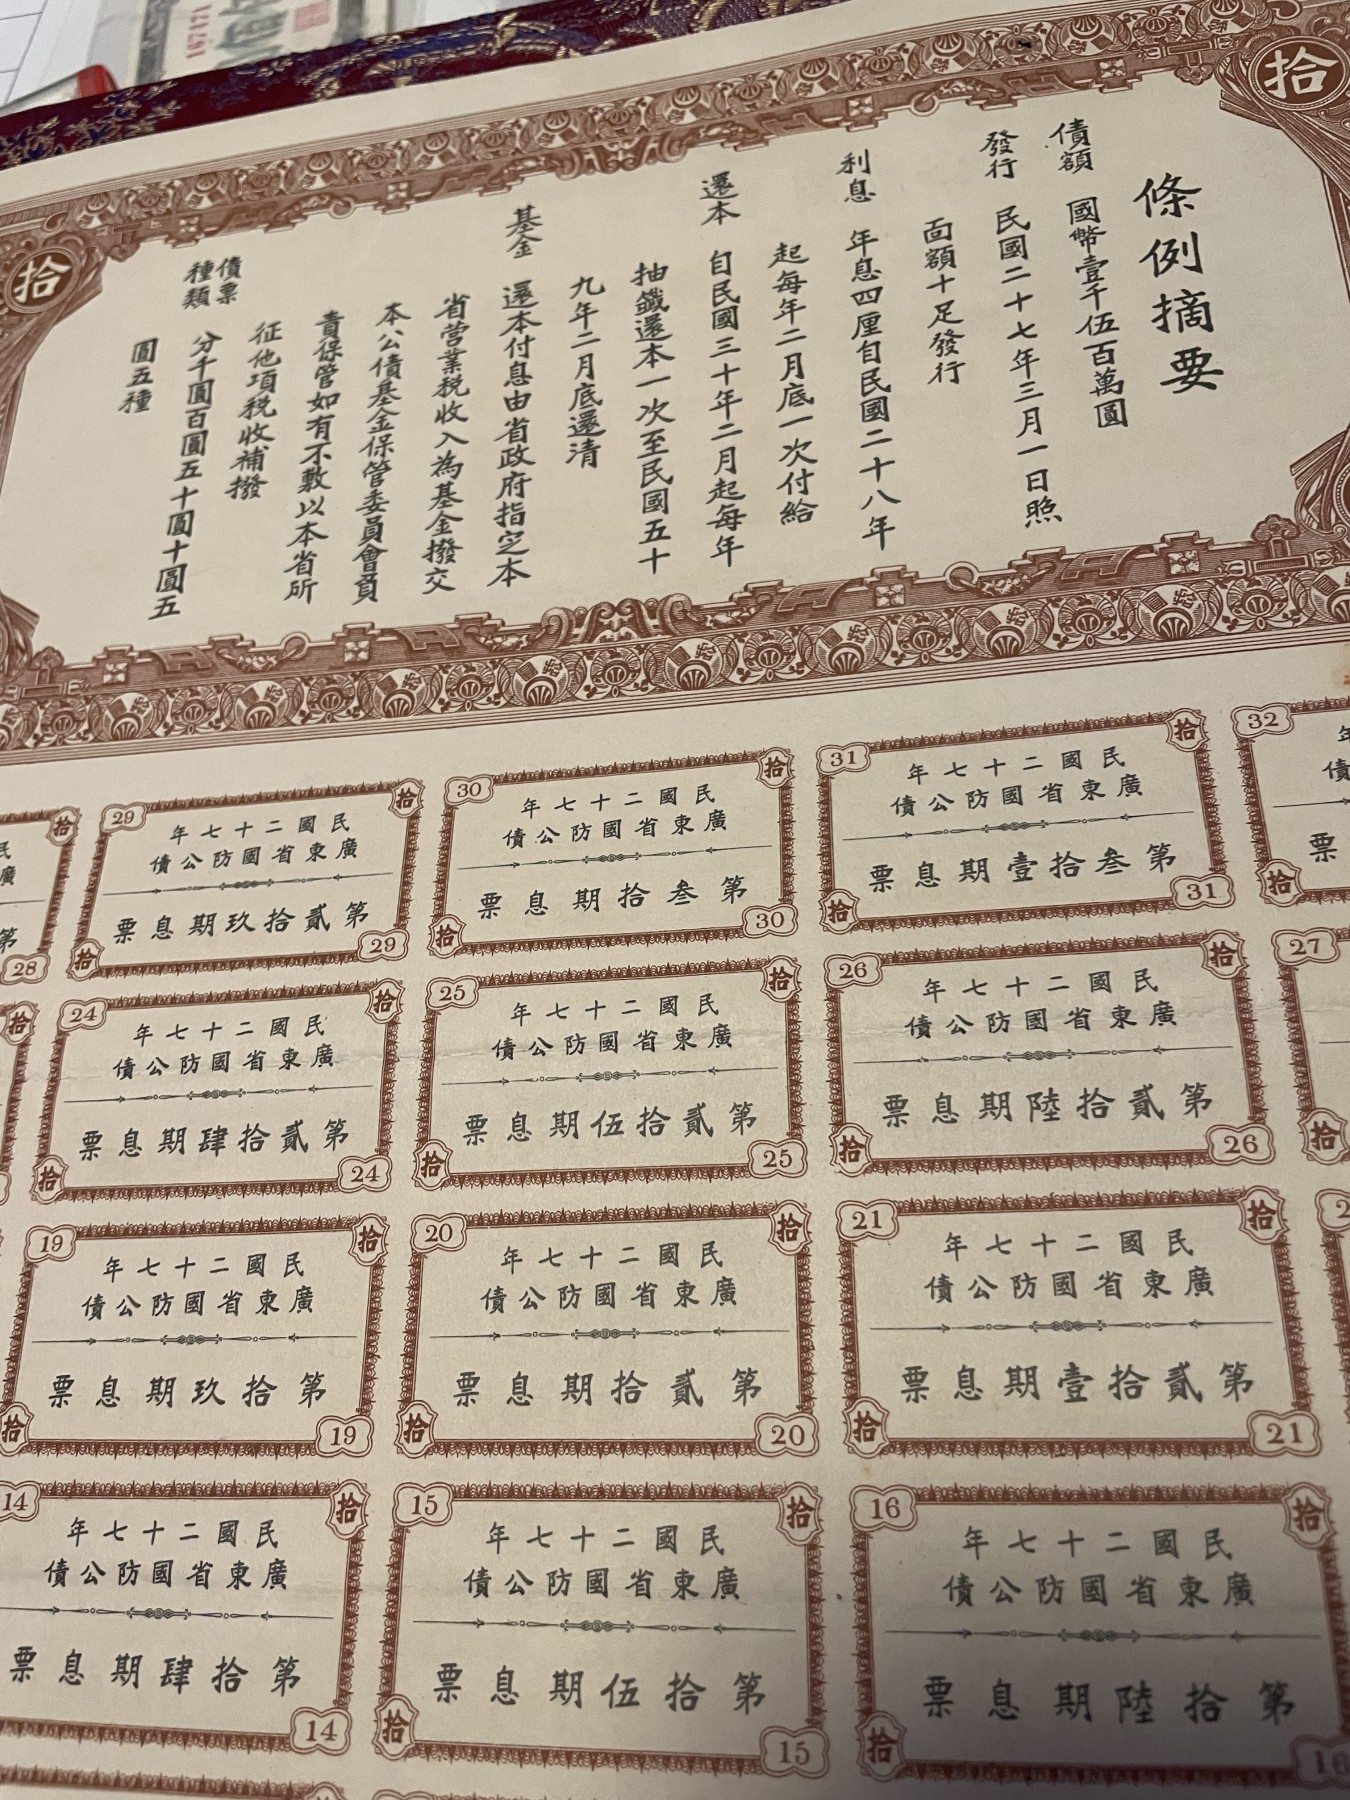 拾
拾
條例摘要
債額 國幣壹千伍百萬圓
發行 民國二十七年三月一日照
面額十足發行
利息 年息四厘自民國二十八年
起每年二月底一次付給
還本 自民國三十年二月起每年
抽籤還本一次至民國五十
九年二月底還清
基金 還本付息由省政府指定本
省營業稅收入為基金撥交
本公債基金保管委員會負
責保管如有不敷以本省所
征他項稅收補撥
債票種類 分千圓百圓五十圓十圓五
圓五種
32
拾
票
31
拾
民國二十七年
廣東省國防公債
第叁拾壹期息票
拾
31
30
拾
民國二十七年
廣東省國防公債
第叁拾期息票
拾
30
29
拾
民國二十七年
廣東省國防公債
第貳拾玖期息票
拾
29
拾
民
廣
第
28
27
拾
26
拾
民國二十七年
廣東省國防公債
第貳拾陸期息票
拾
26
25
拾
民國二十七年
廣東省國防公債
第貳拾伍期息票
拾
25
24
拾
民國二十七年
廣東省國防公債
第貳拾肆期息票
拾
24
拾
21
拾
民國二十七年
廣東省國防公債
第貳拾壹期息票
拾
21
20
拾
民國二十七年
廣東省國防公債
第貳拾期息票
拾
20
19
拾
民國二十七年
廣東省國防公債
第拾玖期息票
拾
19
16
拾
民國二十七年
廣東省國防公債
第拾陸期息票
拾
16
15
拾
民國二十七年
廣東省國防公債
第拾伍期息票
拾
15
14
拾
民國二十七年
廣東省國防公債
第拾肆期息票
14